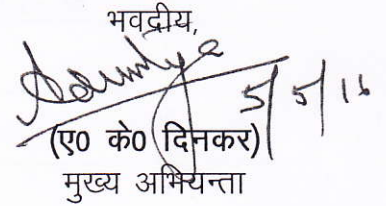 भवदीय,
5/5/16
(ए0 के0 दिनकर)
मुख्य अभियन्ता